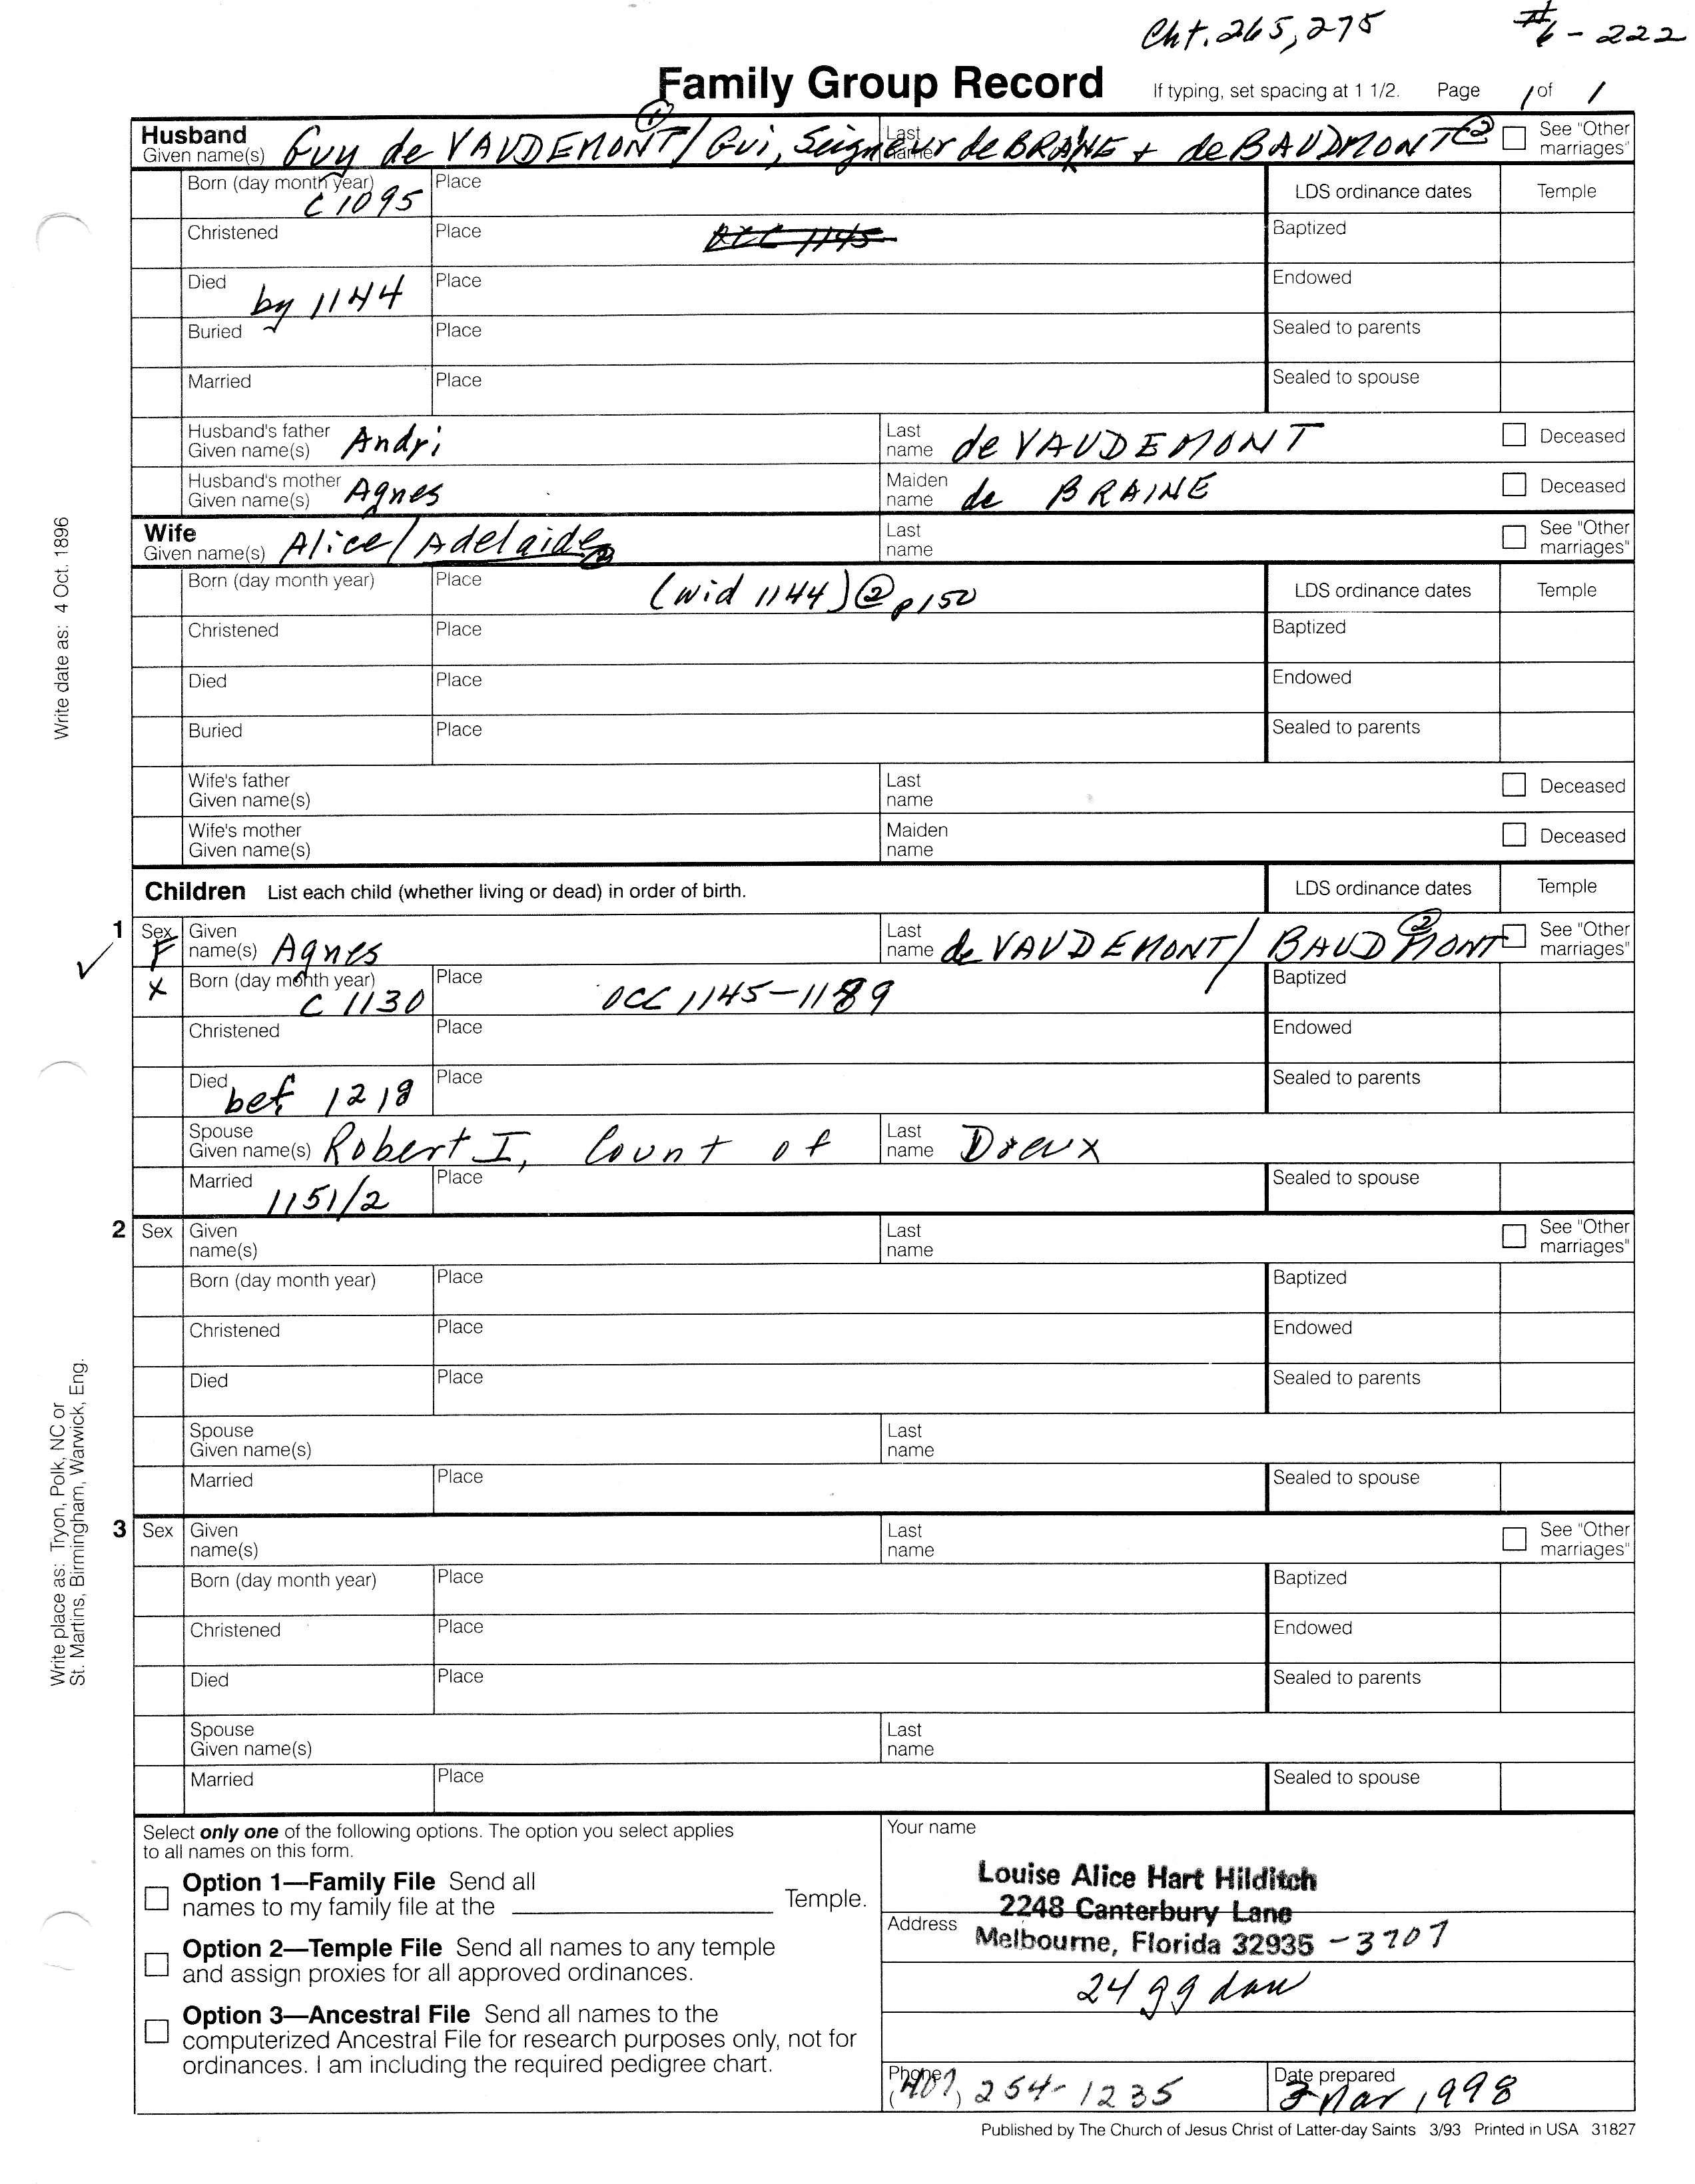 Cht. 265, 275 #6-222
Family Group Record If typing, set spacing at 1 1/2. Page 1 of 1
Husband Given name(s) Guy de VAUDEMONT ① / Gui, Seigneur de BRAINE + de BAUDMONT ② Last name See "Other marriages"
Born (day month year) C 1095 Place LDS ordinance dates Temple
Christened Place OCC 1145 Baptized
Died by 1144 Place Endowed
Buried Place Sealed to parents
Married Place Sealed to spouse
Husband's father Given name(s) Andri Last name de VAUDEMONT Deceased
Husband's mother Given name(s) Agnes Maiden name de BRAINE Deceased
Wife Given name(s) Alice/Adelaide ② Last name See "Other marriages"
Born (day month year) Place (wid 1144) ② p150 LDS ordinance dates Temple
Christened Place Baptized
Died Place Endowed
Buried Place Sealed to parents
Wife's father Given name(s) Last name Deceased
Wife's mother Given name(s) Maiden name Deceased
Children List each child (whether living or dead) in order of birth. LDS ordinance dates Temple
1 Sex F Given name(s) Agnes Last name de VAUDEMONT/BAUDMONT ② See "Other marriages"
✓ X Born (day month year) C 1130 Place OCC 1145-1189 Baptized
Christened Place Endowed
Died bef 1218 Place Sealed to parents
Spouse Given name(s) Robert I, Count of Last name Dreux
Married 1151/2 Place Sealed to spouse
2 Sex Given name(s) Last name See "Other marriages"
Born (day month year) Place Baptized
Christened Place Endowed
Died Place Sealed to parents
Spouse Given name(s) Last name
Married Place Sealed to spouse
3 Sex Given name(s) Last name See "Other marriages"
Born (day month year) Place Baptized
Christened Place Endowed
Died Place Sealed to parents
Spouse Given name(s) Last name
Married Place Sealed to spouse
Write date as: 4 Oct. 1896
Write place as: Tryon, Polk, NC or
St. Martins, Birmingham, Warwick, Eng.
Select only one of the following options. The option you select applies
to all names on this form.
Option 1—Family File Send all
names to my family file at the ____ Temple.
Option 2—Temple File Send all names to any temple
and assign proxies for all approved ordinances.
Option 3—Ancestral File Send all names to the
computerized Ancestral File for research purposes only, not for
ordinances. I am including the required pedigree chart.
Your name
Louise Alice Hart Hilditch
2248 Canterbury Lane
Address Melbourne, Florida 32935 -3707
24 gg dau
Phone (407) 254-1235 Date prepared 3 Mar 1998
Published by The Church of Jesus Christ of Latter-day Saints 3/93 Printed in USA 31827